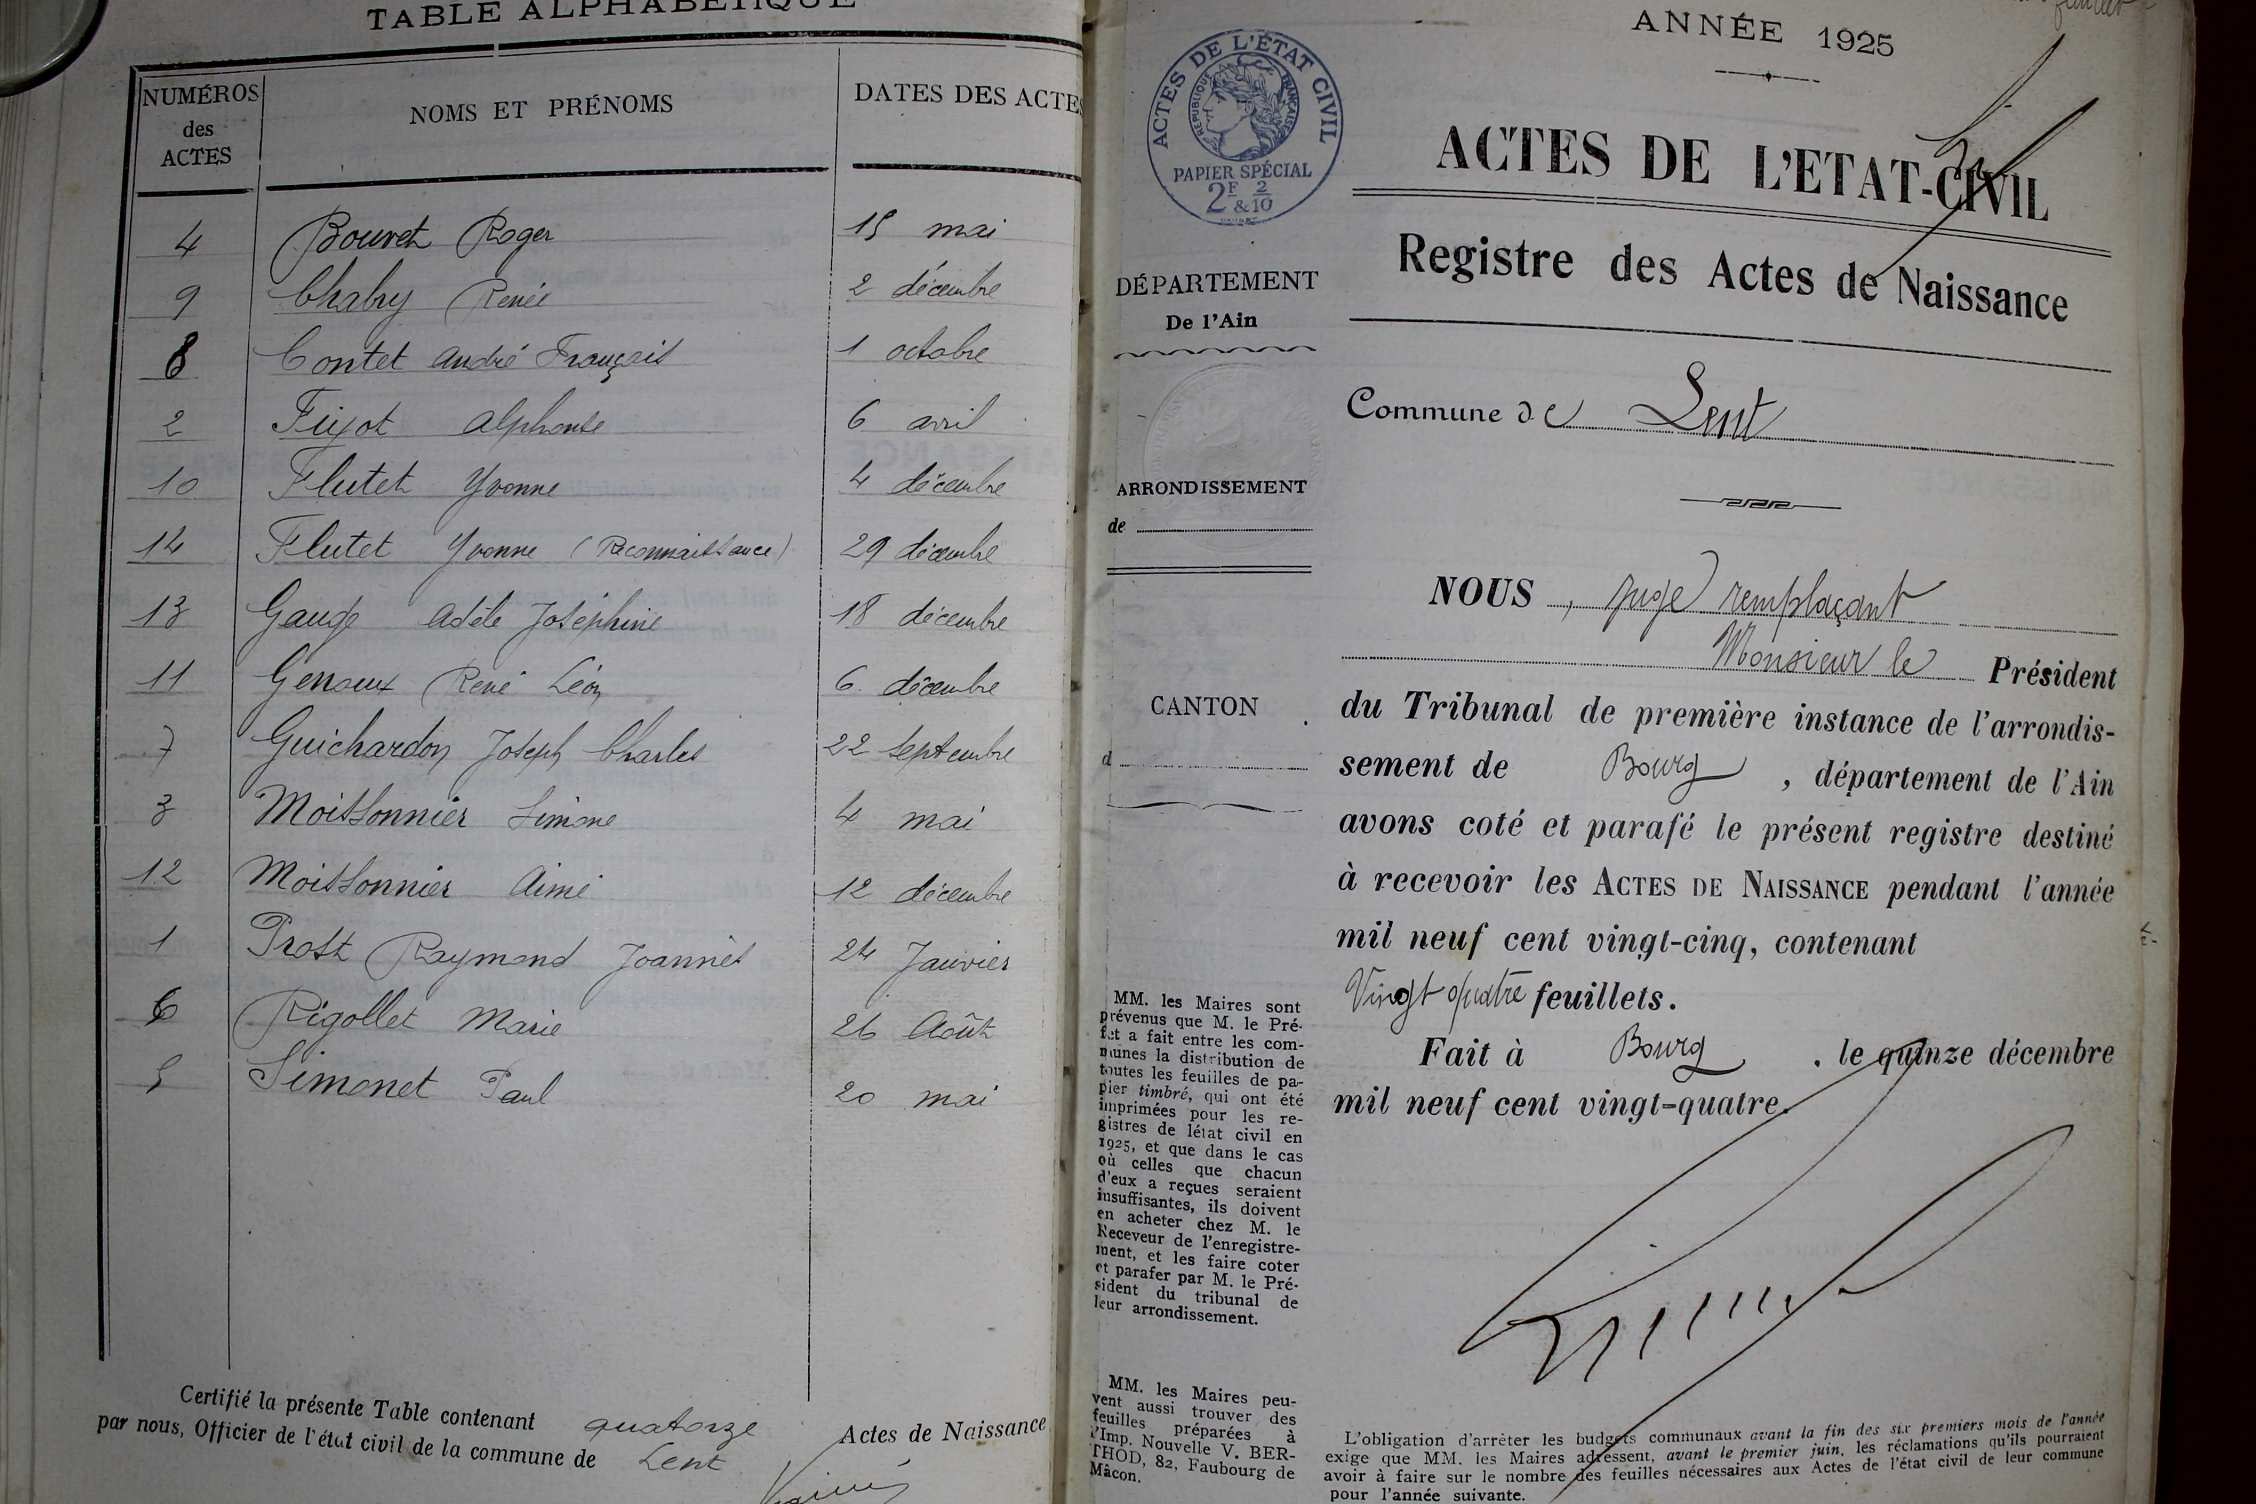 TABLE ALPHABETIQUE
NUMÉROS des ACTES
NOMS ET PRÉNOMS
DATES DES ACTES
4 Bouvet Roger 15 mai
9 Chabry Renée 2 décembre
8 Contet André François 1 octobre
2 Fizot Alphonse 6 avril
10 Flutet Yvonne 4 décembre
14 Flutet Yvonne (Reconnaissance) 29 décembre
13 Gauge Adèle Joséphine 18 décembre
11 Genoux René Léon 6 décembre
7 Guichardon Joseph Charles 22 septembre
3 Moissonnier Simone 4 mai
12 Moissonnier Aimé 12 décembre
1 Prost Raymond Joannès 24 Janvier
6 Rigollet Marie 26 Août
5 Simonet Paul 20 mai
Certifié la présente Table contenant quatorze Actes de Naissance
par nous, Officier de l'état civil de la commune de Lent
ANNÉE 1925
ACTES DE L'ÉTAT CIVIL
RÉPUBLIQUE FRANÇAISE
PAPIER SPÉCIAL
2F & 2/10
ACTES DE L'ETAT-CIVIL
Registre des Actes de Naissance
DÉPARTEMENT
De l'Ain
Commune de Lent
ARRONDISSEMENT
de
NOUS, Juge remplaçant
Monsieur le Président
CANTON
d
du Tribunal de première instance de l'arrondis-
sement de Bourg, département de l'Ain
avons coté et parafé le présent registre destiné
à recevoir les ACTES DE NAISSANCE pendant l'année
mil neuf cent vingt-cinq, contenant
Vingt quatre feuillets.
Fait à Bourg. le quinze décembre
mil neuf cent vingt-quatre.
MM. les Maires sont
prévenus que M. le Pré-
fet a fait entre les com-
munes la distribution de
toutes les feuilles de pa-
pier timbré, qui ont été
imprimées pour les re-
gistres de létat civil en
1925, et que dans le cas
où celles que chacun
d'eux a reçues seraient
insuffisantes, ils doivent
en acheter chez M. le
Receveur de l'enregistre-
ment, et les faire coter
et parafer par M. le Pré-
sident du tribunal de
leur arrondissement.
MM. les Maires peu-
vent aussi trouver des
feuilles préparées à
l'Imp. Nouvelle V. BER-
THOD, 82, Faubourg de
Mâcon.
L'obligation d'arrêter les budgets communaux avant la fin des six premiers mois de l'année
exige que MM. les Maires adressent, avant le premier juin, les réclamations qu'ils pourraient
avoir à faire sur le nombre des feuilles nécessaires aux Actes de l'état civil de leur commune
pour l'année suivante.